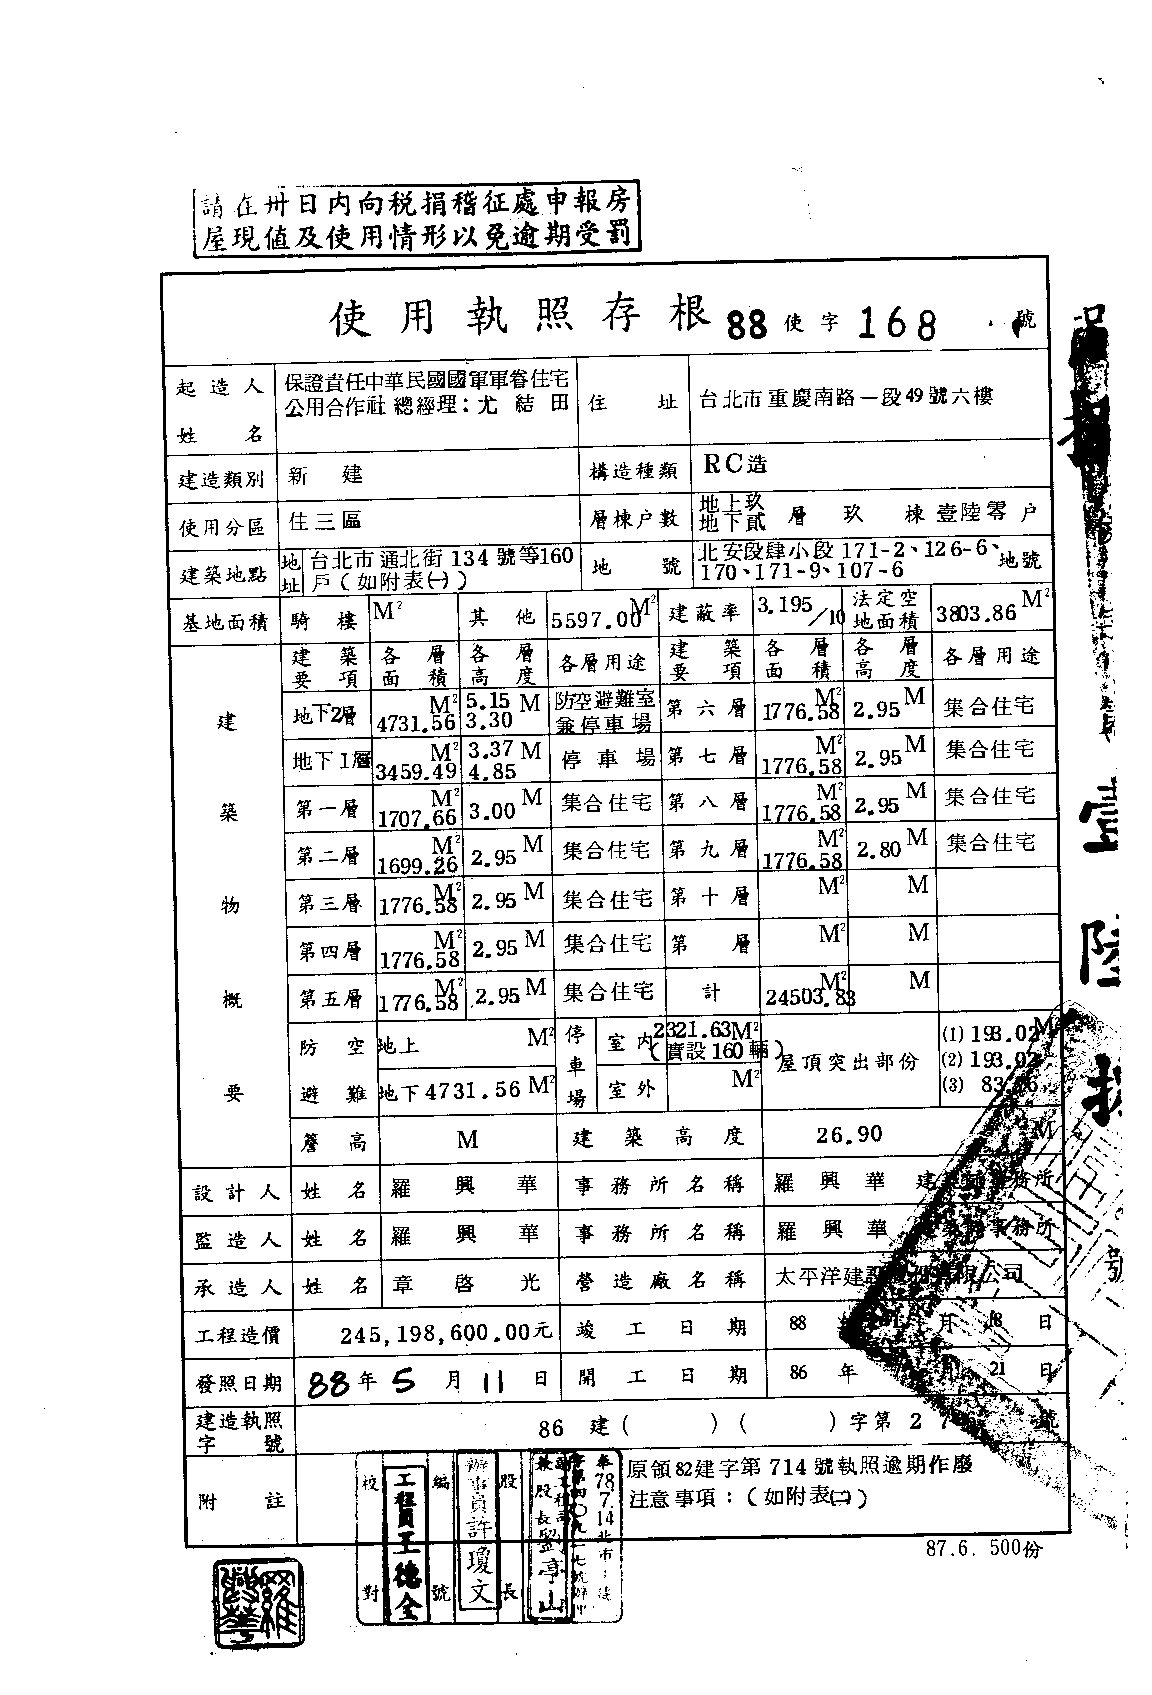 請在卅日內向稅捐稽征處申報房
屋現值及使用情形以免逾期受罰
使用執照存根 88 使字 168 號
起造人姓名 保證責任中華民國國軍軍眷住宅
公用合作社 總經理：尤結田 住址 台北市重慶南路一段49號六樓
建造類別 新建 構造種類 RC造
使用分區 住三區 層棟户數 地上玖
地下貳 層 玖 棟 壹陸零 户
建築地點 地址 台北市通北街134號等160
戶（如附表㈠） 地號 北安段肆小段171-2、126-6、
170、171-9、107-6 地號
基地面積 騎樓 M² 其他 5597.00 M² 建蔽率 3.195/10 法定空地面積 3803.86 M²
建築物概要
建築要項 各層面積 各層高度 各層用途 建築要項 各層面積 各層高度 各層用途
地下2層 4731.56 M² 5.15 M 3.30 防空避難室兼停車場 第六層 1776.58 M² 2.95 M 集合住宅
地下1層 3459.49 M² 3.37 M 4.85 停車場 第七層 1776.58 M² 2.95 M 集合住宅
第一層 1707.66 M² 3.00 M 集合住宅 第八層 1776.58 M² 2.95 M 集合住宅
第二層 1699.26 M² 2.95 M 集合住宅 第九層 1776.58 M² 2.80 M 集合住宅
第三層 1776.58 M² 2.95 M 集合住宅 第十層 M² M
第四層 1776.58 M² 2.95 M 集合住宅 第 層 M² M
第五層 1776.58 M² 2.95 M 集合住宅 計 24503.83 M² M
防空避難 地上 M² 停車場 室內 2321.63M²
（實設160輛） 屋頂突出部份 (1) 193.02 M²
(2) 193.02
地下 4731.56 M² 室外 M² (3) 83.
簷高 M 建築高度 26.90 M
設計人 姓名 羅興華 事務所名稱 羅興華建 事務所
監造人 姓名 羅興華 事務所名稱 羅興華 事務所
承造人 姓名 章啓光 營造廠名稱 太平洋建設 有限公司
工程造價 245,198,600.00元 竣工日期 88 月 18 日
發照日期 88年5月11日 開工日期 86年 21 日
建造執照字號 86 建（ ）（ ）字第 2 號
附註 原領82建字第714號執照逾期作廢
注意事項：（如附表㈡）
校對 工程員王德全 編號 辦事員許瓊文 股長 兼股長劉亭山
78.7.14北市
87.6. 500份
壹陸捌號